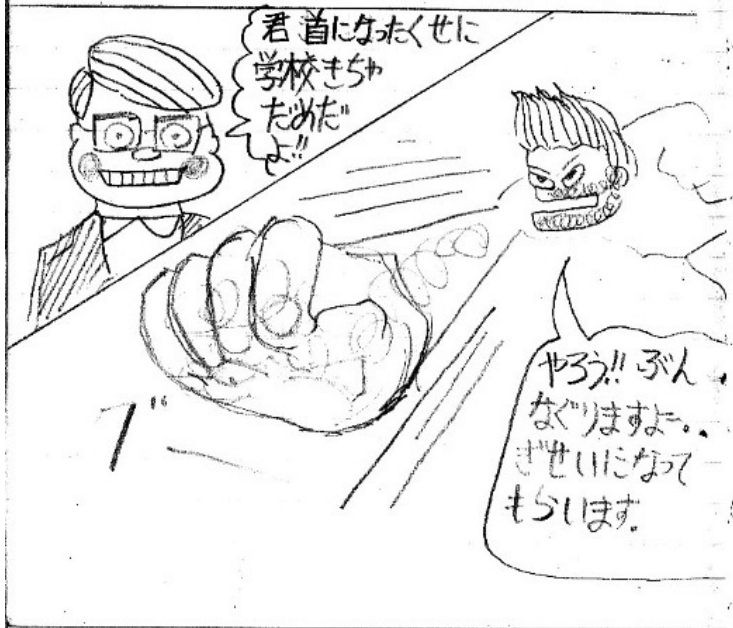 君首になったくせに
学校きちゃ
だめだ
よ!!
ブー
やろう!!ぶん
なぐりますよ..
ぎせいになって
もらいます。